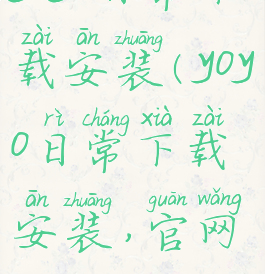 zài ān zhuāng
载安装(yoy
rì cháng xià zài
o日常下载
ān zhuāng guān wǎng
安装,官网